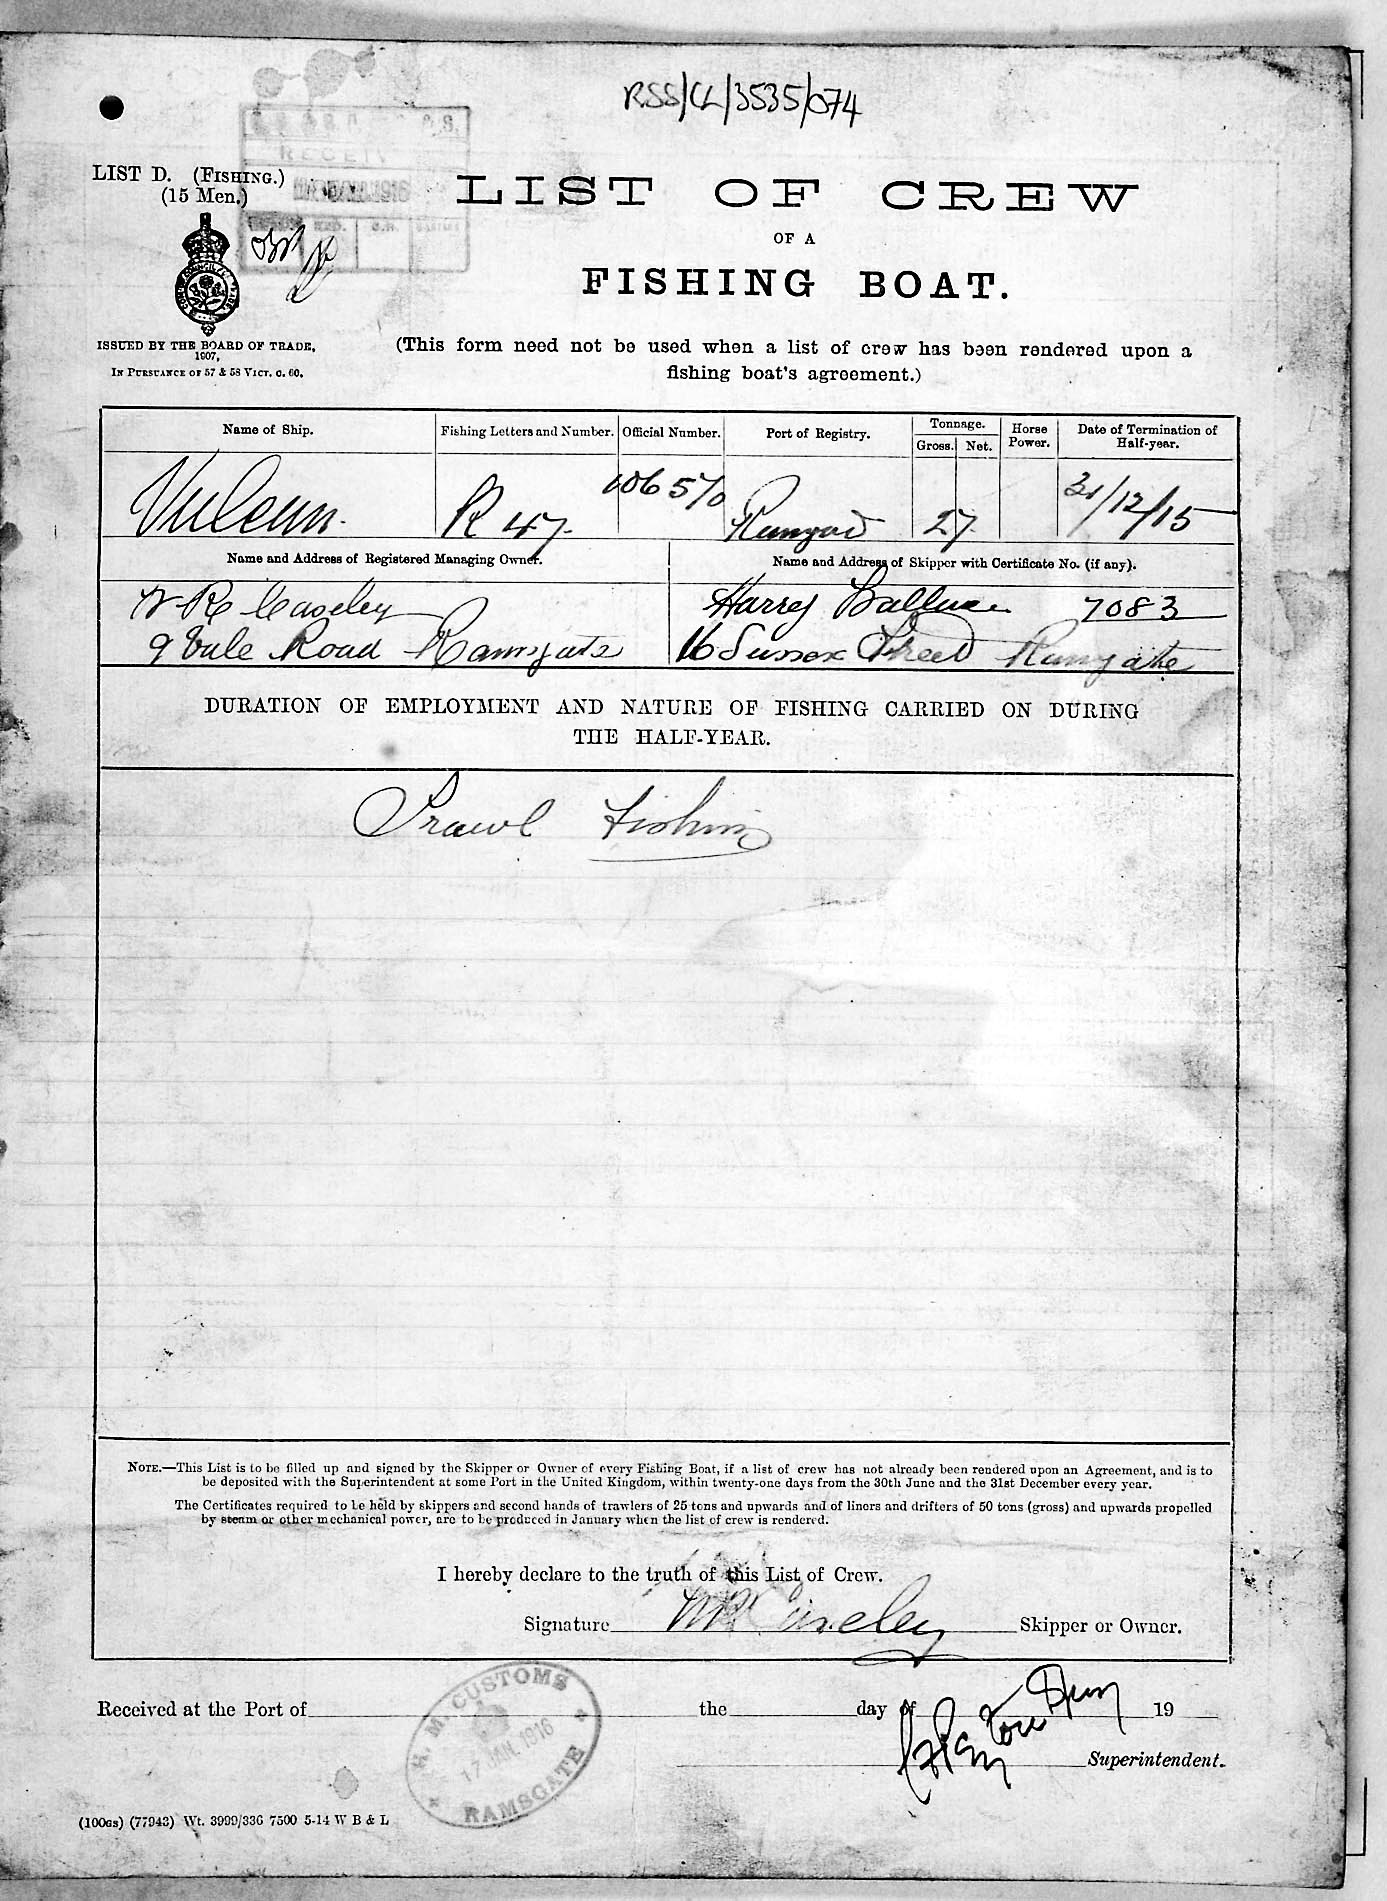 RSS/CL/3535/074
RECEIV
1916
LIST D. (FISHING.)
(15 Men.)
LIST OF CREW
OF A
FISHING BOAT.
ISSUED BY THE BOARD OF TRADE,
1907,
IN PURSUANCE OF 57 & 58 VICT. C. 60.
(This form need not be used when a list of crew has been rendered upon a
fishing boat's agreement.)
Name of Ship. Fishing Letters and Number. Official Number. Port of Registry. Tonnage. Gross. Net. Horse Power. Date of Termination of Half-year.
Vulcan. R 47. 106570 Ramsgate 27 31/12/15
Name and Address of Registered Managing Owner. Name and Address of Skipper with Certificate No. (if any).
W R Caseley Harry 7083
9 Vale Road Ramsgate 16 Sussex Street Ramsgate
DURATION OF EMPLOYMENT AND NATURE OF FISHING CARRIED ON DURING
THE HALF-YEAR.
Trawl Fishing
NOTE.—This List is to be filled up and signed by the Skipper or Owner of every Fishing Boat, if a list of crew has not already been rendered upon an Agreement, and is to
be deposited with the Superintendent at some Port in the United Kingdom, within twenty-one days from the 30th June and the 31st December every year.
The Certificates required to be held by skippers and second hands of trawlers of 25 tons and upwards and of liners and drifters of 50 tons (gross) and upwards propelled
by steam or other mechanical power, are to be produced in January when the list of crew is rendered.
I hereby declare to the truth of this List of Crew.
Signature W R Caseley Skipper or Owner.
Received at the Port of the day of 19
H. M. CUSTOMS
17 JAN. 1916
RAMSGATE
Superintendent.
(100gs) (77943) Wt. 3999/336 7500 5-14 W B & L